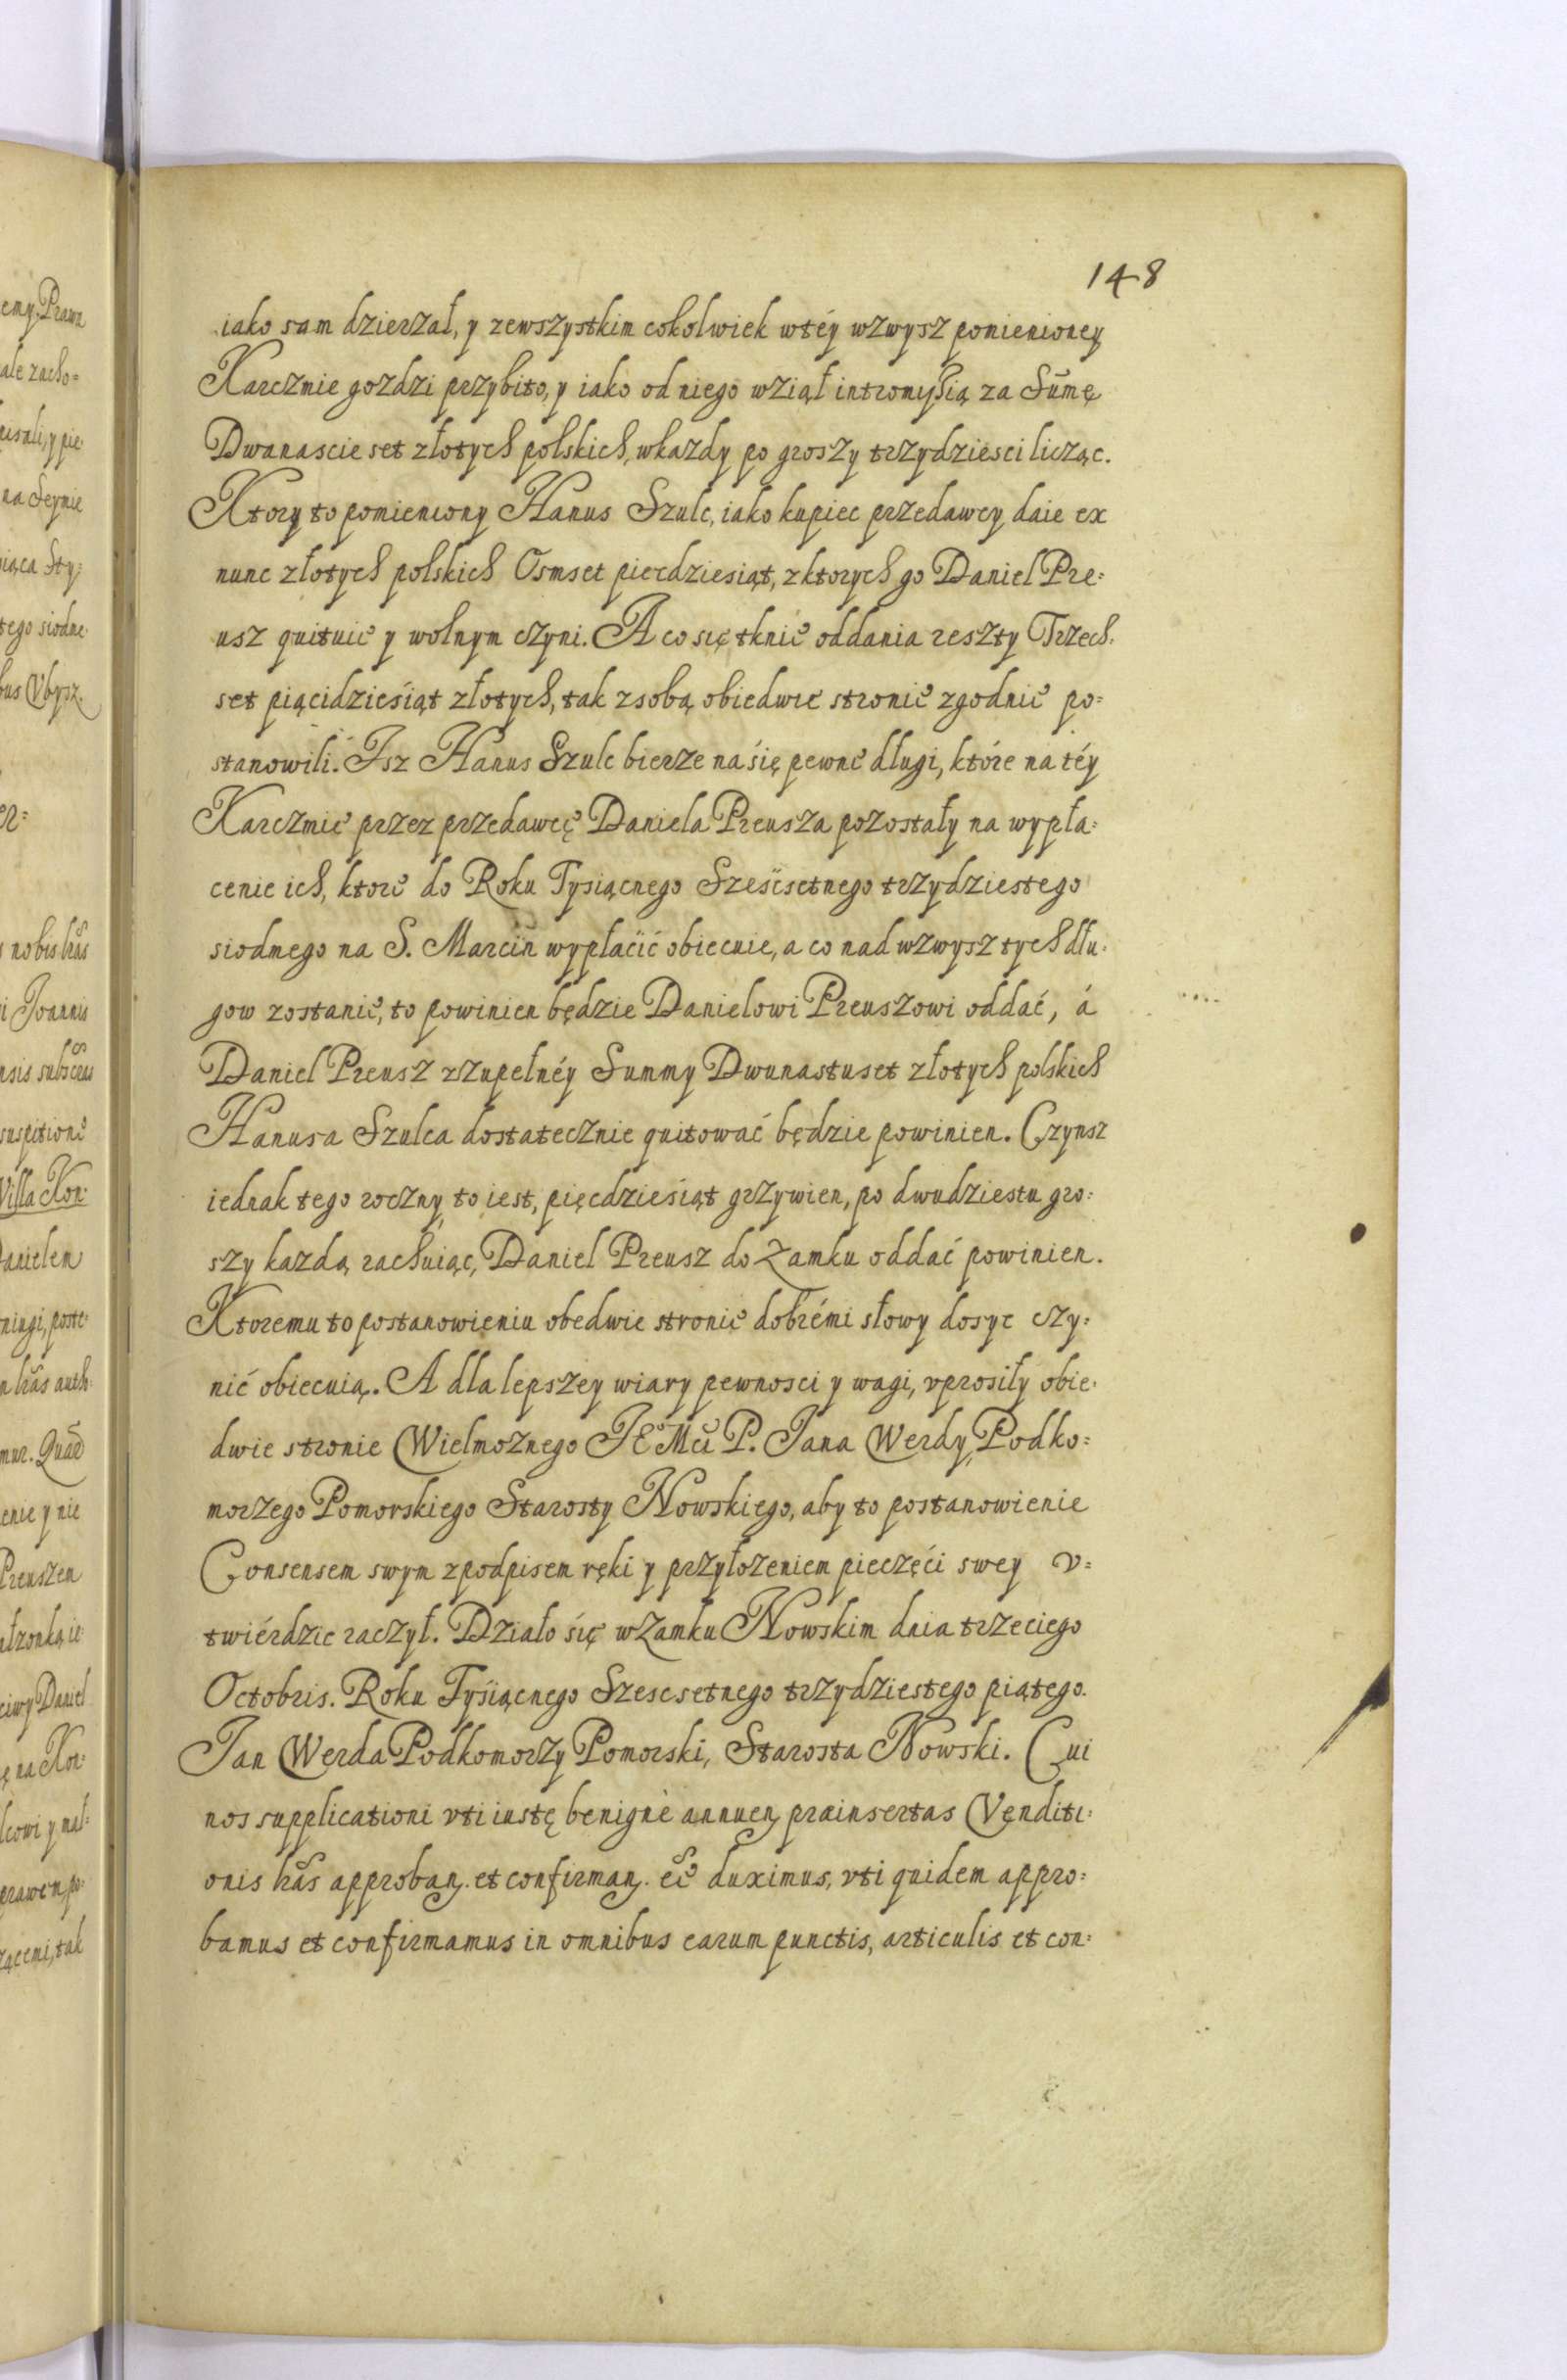 148
iako sam dzierzał, y zewszystkim cokolwiek wtéy wzwysz ponienioney
Karcznie gozdzi przybito, y iako od niego wziął intromyssią za Sumę
Dwanascie set złotych polskich, wkazdy po groszy trzydziesci licząc.
Ktory to pomieniony Hanus Szulc, iako kupiec przedawcy daie ex
nunc złotych polskich Osmset pierdziesiąt, zktorych go Daniel Pre=
usz quituie y wolnym czyni. A co się tknie oddania reszty Trzech
set piącidziesiąt złotych, tak zsobą obiedwie stronie zgodnie po=
stanowili. Isz Hanus Szulc bierze na się pewne długi, które na téy
Karczmie przez przedawcę Daniela Preusza pozostały na wypła=
cenie ich, ktore do Roku Tysiącnego Szescsetnego trzydziestego
siodmego na S. Marcin wypłacić obiecuie, a co nad wzwysz tych dłu=
gow zostanie, to powinien będzie Danielowi Preuszowi oddać, á
Daniel Preusz zzupełnéy Summy Dwunastuset złotych polskich
Hanusa Szulca dostatecznie quitować będzie powinien. Czynsz
iednak tego roczny, to iest, pięcdziesiąt grzywien, po dwudziestu gro=
szy kazdą rachuiąc, Daniel Preusz do Zamku oddać powinien.
Ktoremu to postanowieniu obedwie stronie dobrémi słowy dosyc czy=
nić obiecuią. A dla lepszey wiary pewnosci y wagi, vprosiły obie=
dwie stronie Wielmoznego JE Mci P. Jana Werdy, Podko=
morzego Pomorskiego Starosty Nowskiego, aby to postanowienie
Consensem swym zpodpisem ręki y przyłozeniem pieczęći swey v=
twiérdzic raczył. Działo się wZamku Nowskim dnia trzeciego
Octobris. Roku Tysiącnego Szescsetnego trzydziestego piątego.
Jan Werda Podkomorzy Pomorski, Starosta Nowski. Cui
nos supplicationi vti iustę benigne annuen prainsertas Venditi=
onis lras approban. et confirman. ec duximus, vti quidem appro=
bamus et confirmamus in omnibus earum punctis, articulis et con=